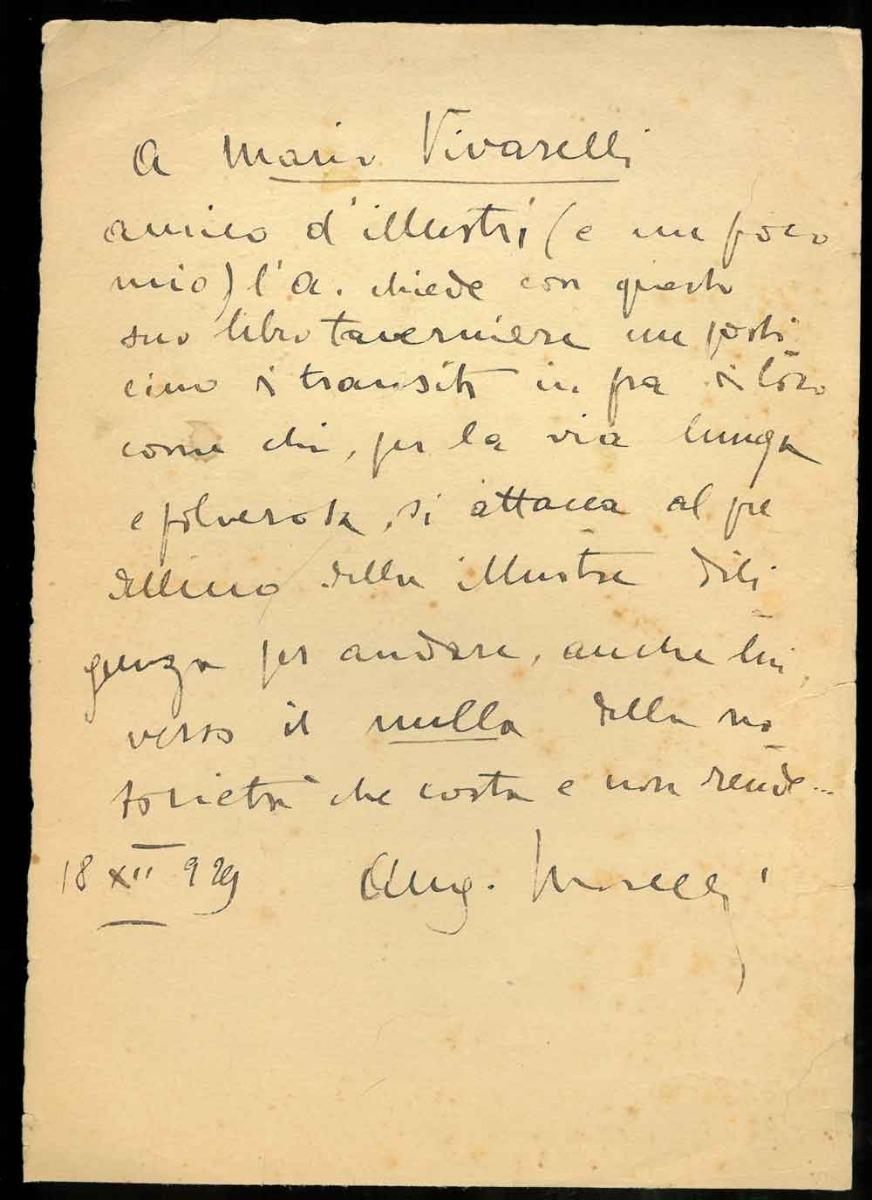 A Mario Vivarelli
amico d'illustri (e un poco
mio) l'A. chiede con questo
suo libro taverniere un posti
cino di transito in fra di loro
come chi, per la via lunga
e polverosa, si attacca al pre
dellino della illustre dili
genza per andare, anche lui,
verso il nulla della no
torietà che costa e non rende...
18 XII 929 Aug. Novelli